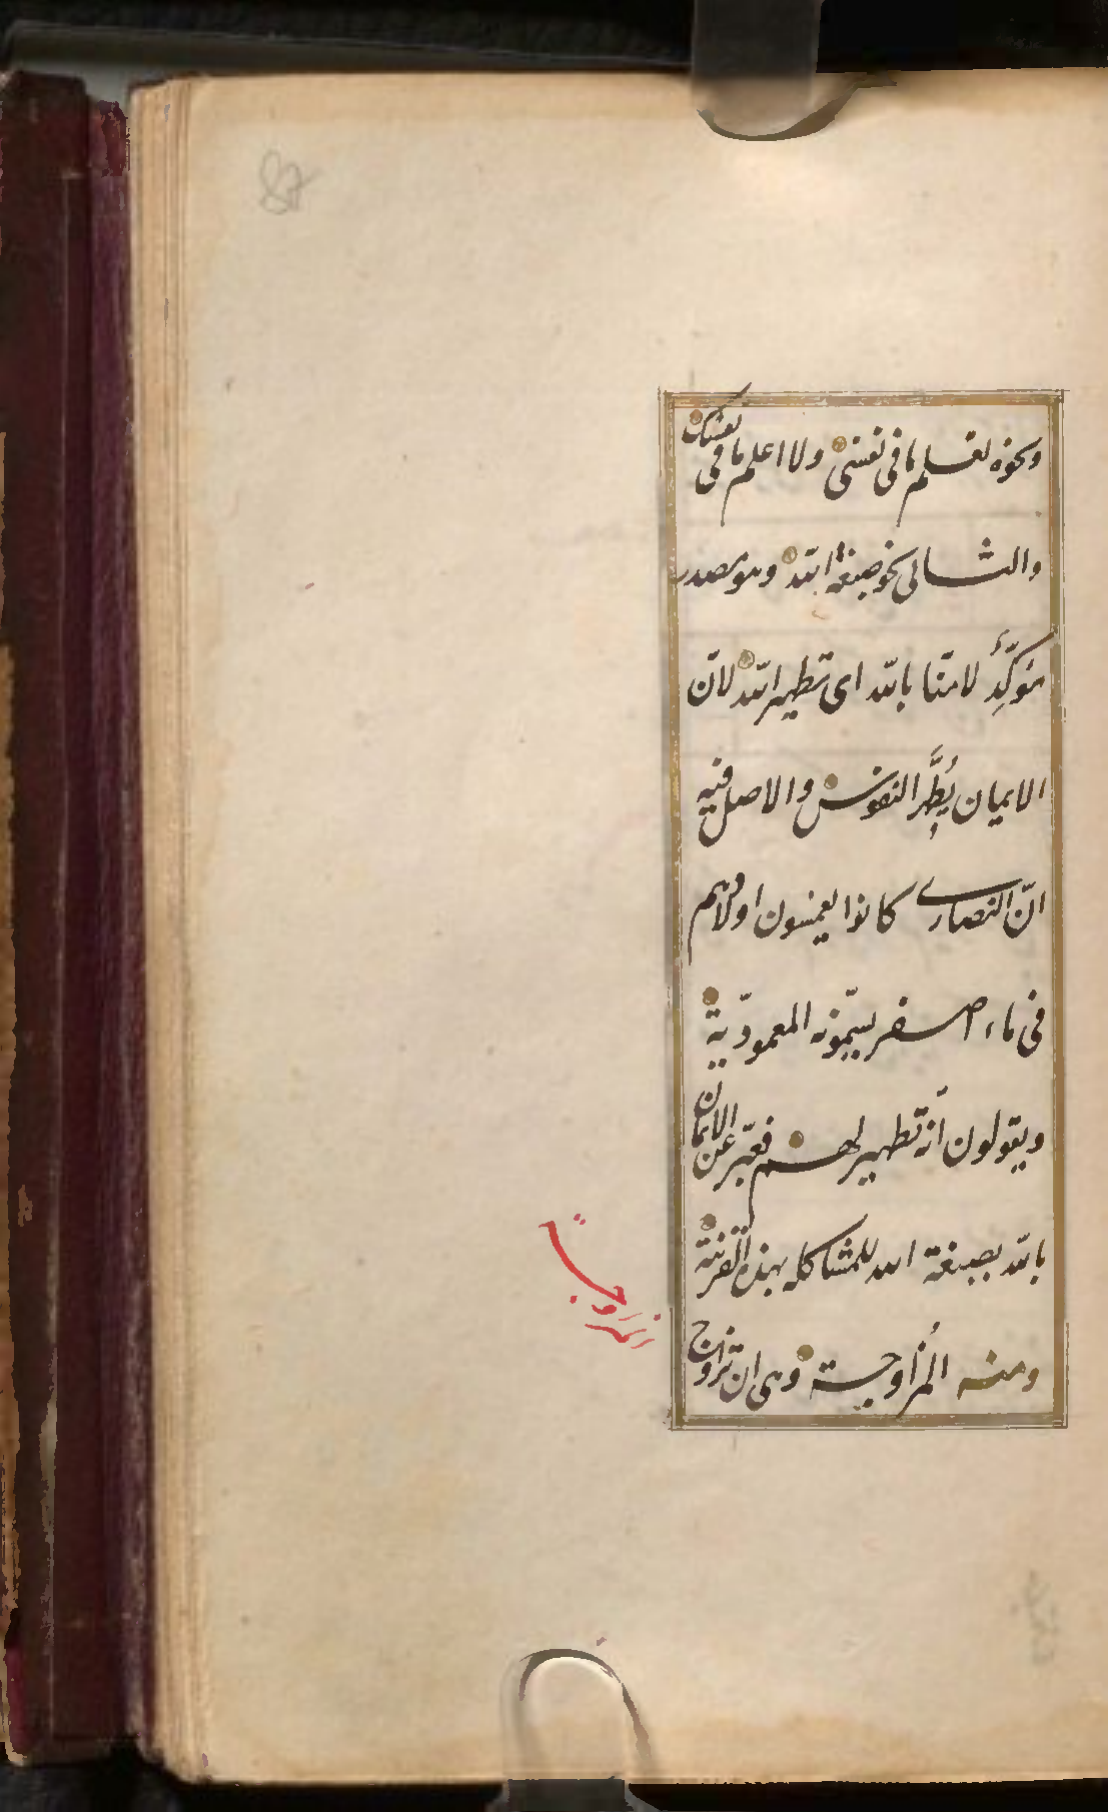 87
ونحوه تعلم ما فى نفسى ولا اعلم ما فى نفسك
والثانى نحو صبغة الله وهو مصدر
مؤكِّدٌ لامنّا بالله اى تطهير الله لانّ
الايمان يُطهِّر النفوس والاصل فيه
انّ النصارى كانوا يغمسون اولادهم
فى ماء اصفر يسمّونه المعموديّة
ويقولون انّه تطهير لهم فعبّر عن الايمان
بالله بصبغة الله للمشاكلة بهذه القرينة
ومنه المُزاوجة وهى ان تزاوج